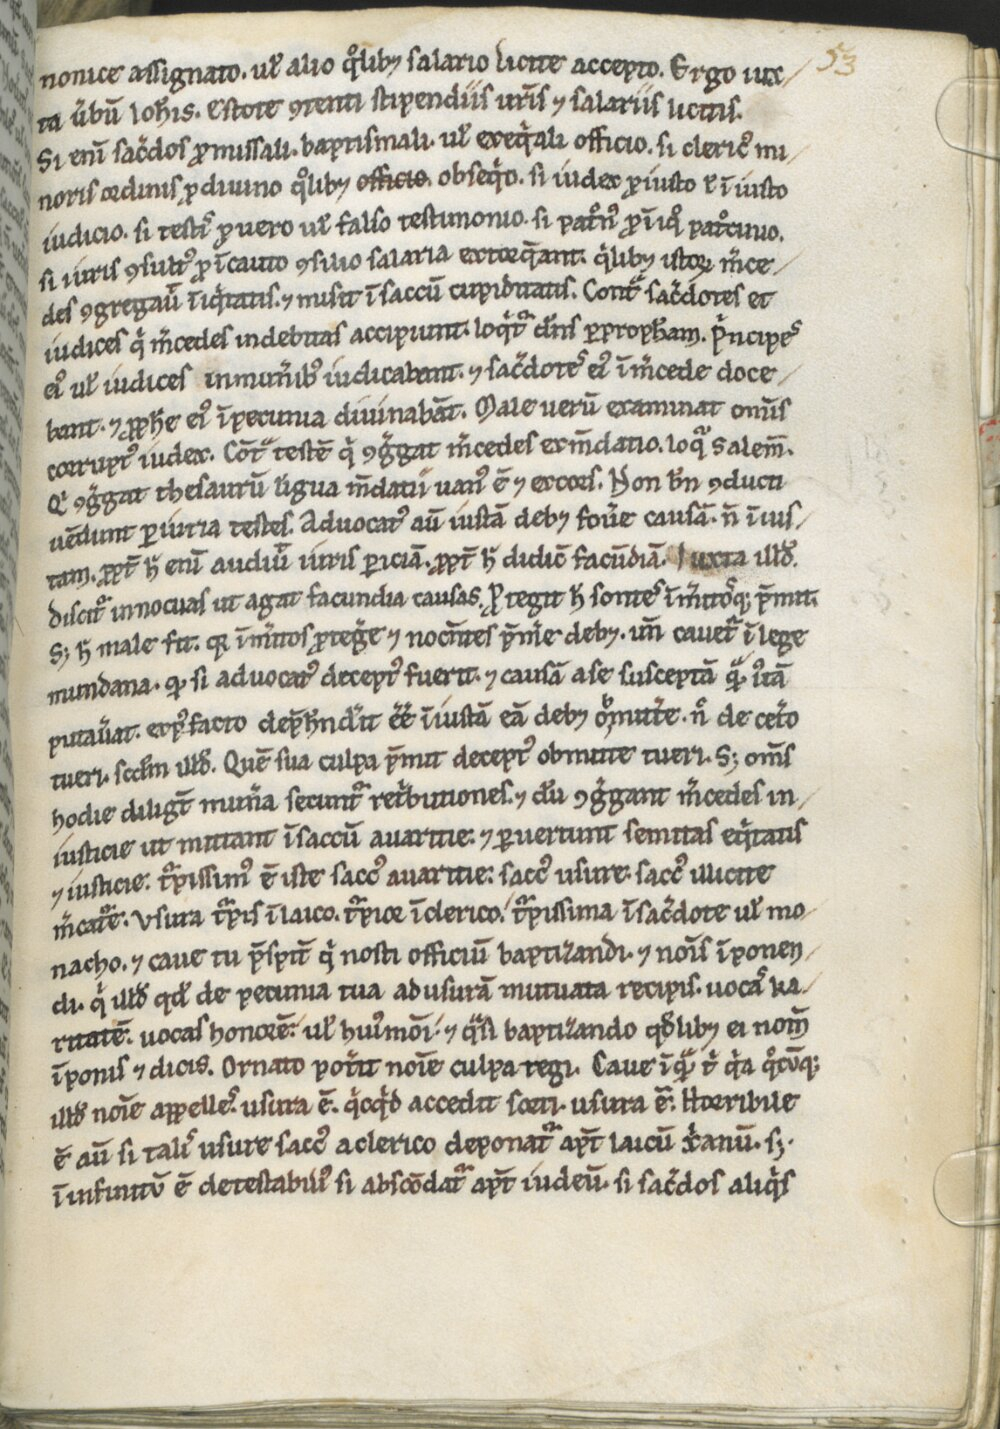 53
nonice assignato. ul̛ alio qͦlibꝫ salario licite accepto. Ergo iux⸍
ta u̓bū ioh̄is. Estote ꝯtenti stipendiis ur̄is ⁊ salariis licitis.
Si eni̅ sac̓dos ꝓ missali. baptismali. ul̛ exeq̓ali officio. si cleric᷒ mi⸍
noris ordinis ꝓ diuino qͦlibꝫ officio. obseq̓o. si iudex ꝓ iusto ł i̅iusto
iudicio. si testis ꝓ uero ul̛ falso testimonio. si patͦn᷒ ꝓ i̅iqͦ patͦcinio.
si iuris ꝯsult᷒ ꝓ i̅cauto ꝯsilio salaria extorq̄ant. q̓libꝫ istoꝝ m̓ce⸍
des ꝯgregau̅ i̅iq̓tatis. ⁊ misit i̅ saccū cupiditatis. Contᷓ sac̓dotes et
iudices q̓ m̓cedes indebitas accipiunt. loq̓tᷣ dn̄s ꝑ proph̄am. P̓ncipes
ei᷒ ul̛ iudices in mun̓ib᷒ iudicabant. ⁊ sac̓dotes ei᷒ i̅ m̓cede doce⸍
bant. ⁊ ꝓph̄e ei᷒ i̅ pecunia diuinabāt. Male uerū examinat om̄is
corrupt᷒ iudex. Cōtᷓ testē q̓ ꝯg̓gat m̓cedes ex m̄datio. loq̓ᷣ Salem̄.
Q̓ ꝯg̓gat thesaurū li̅gua m̄datii uan᷒ ē ⁊ excors. Non bn̄ ꝯducti
uēdunt ꝑiuria testes. Aduocat᷒ aū iustā debꝫ fou̓e causā. n̄ i̅ius⸍
tam. ꝓpt̓ h̄ eni̅ audiu̅ iuris ꝑiciā. ꝓpt̓ h̄ didic̄ facūdiā. Iuxta illđ.
Discitᷣ innocuas ut agat facundia causas. Ꝓtegit h̄ sontes i̅m̓itosqꝫ p̄mit.
Sꝫ h̄ male fit. qꝛ i̅m̓itos ꝓteg̓e ⁊ nocētes p̄m̓e debꝫ. un̄ cauetᷣ i̅ lege
mundana. ꝙ si aduocat᷒ decept᷒ fuerit. ⁊ causā a se susceptā qᷓ iᷤtā
putau̓at. ex pᷤ facto dep̄h̄nd̓it ēē i̅iustā eā debꝫ omitt̓e. n̄ de cet̓o
tueri. scđm illđ. Quē sua culpa p̄mit decept᷒ obmitte tueri. Sꝫ om̄s
hodie diligt̄ mun̓a secuntᷣ ret̓butiones. ⁊ dū ꝯg̓gant m̓cedes in⸍
iusticie ut mittant i̅ saccū auaritie. ⁊ ꝑuertunt semitas eq̓tatis
⁊ iusticie. tᷣpissim᷒ ē iste sacc᷒ auaritie. sacc᷒ usure. sacc᷒ illicite
m̓catᷣe. Vsura tᷣpis i̅ laico. tᷣpior i̅ clerico. tᷣpissima i̅ sac̓dote ul̛ mo⸍
nacho. ⁊ caue tu p̄sp̄it q̓ nosti officiū baptizandi. ⁊ nois̄ i̅ponen⸍
di. q̓ illđ qđ de pecunia tua ad usurā mutuata recipis. uocas ka⸍
ritatē. uocas honorē. ul̛ hui᷒mōi. ⁊ qᷓsi baptizando qđlibꝫ ei nom̄
i̅ponis ⁊ dicis. Ornato pot̓it noi̅e culpa regi. Caue i̅qᷓ t̓ q̓a qͦcūqꝫ
illđ noi̅e appelles. usura ē. q̓cq̓d accedit sorti. usura ē. Horribile
ē aū si talis usure sacc᷒ a clerico deponatᷣ apt̄ laicū xp̄anū. sꝫ.
i̅ infinitū ē detestabili᷒ si abscōdatᷣ apt̄ iudeū. si sac̓dos aliq̓s